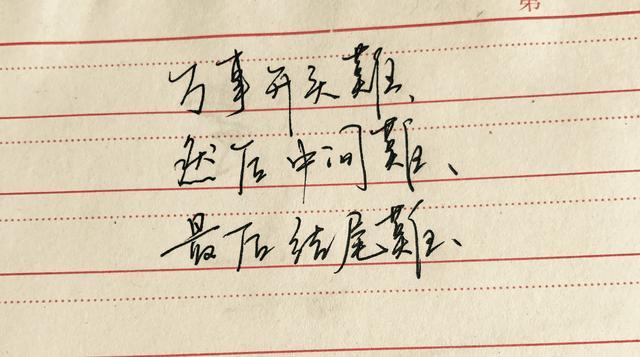 第
万事开头難、
然后中间難、
最后结尾難、